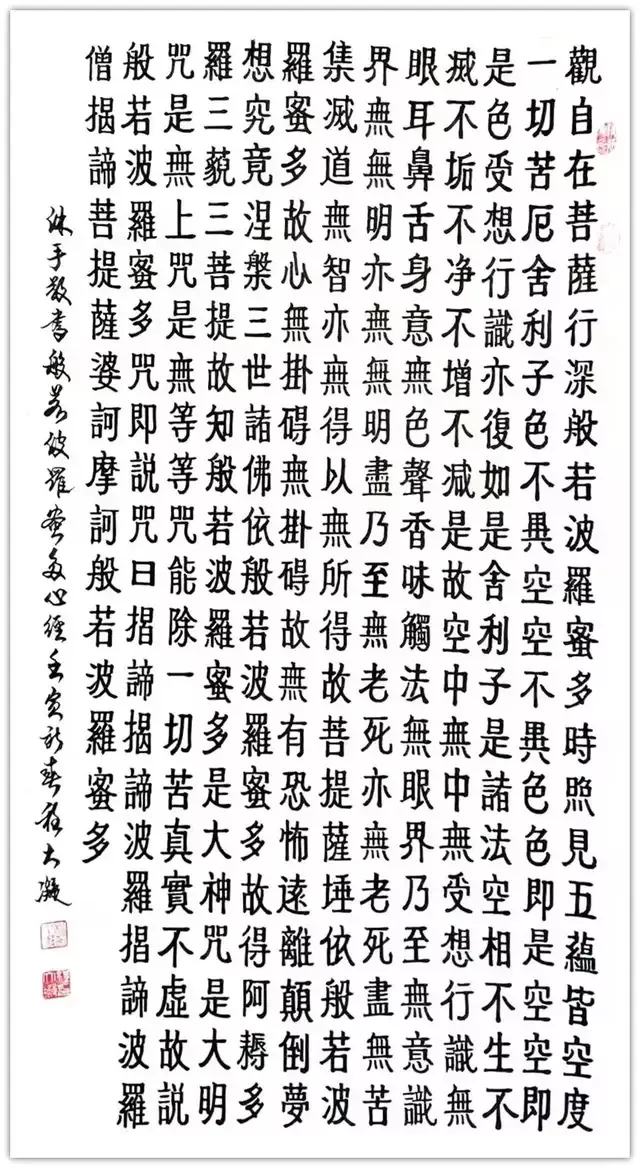 觀自在菩薩行深般若波羅蜜多時照見五蘊皆空度
一切苦厄舍利子色不異空空不異色色即是空空即
是色受想行識亦復如是舍利子是諸法空相不生不
滅不垢不净不增不减是故空中無中無受想行識無
眼耳鼻舌身意無色聲香味觸法無眼界乃至無意識
界無無明亦無無明盡乃至無老死亦無老死盡無苦
集滅道無智亦無得以無所得故菩提薩埵依般若波
羅蜜多故心無掛碍無掛碍故無有恐怖遠離顛倒夢
想究竟涅槃三世諸佛依般若波羅蜜多故得阿耨多
羅三藐三菩提故知般若波羅蜜多是大神咒是大明
咒是無上咒是無等等咒能除一切苦真實不虛故説
般若波羅蜜多咒即説咒曰揩諦揭諦波羅揩諦波羅
僧揭諦菩提薩婆訶摩訶般若波羅蜜多
沐手敬書般若波羅蜜多心經壬寅新春大凝